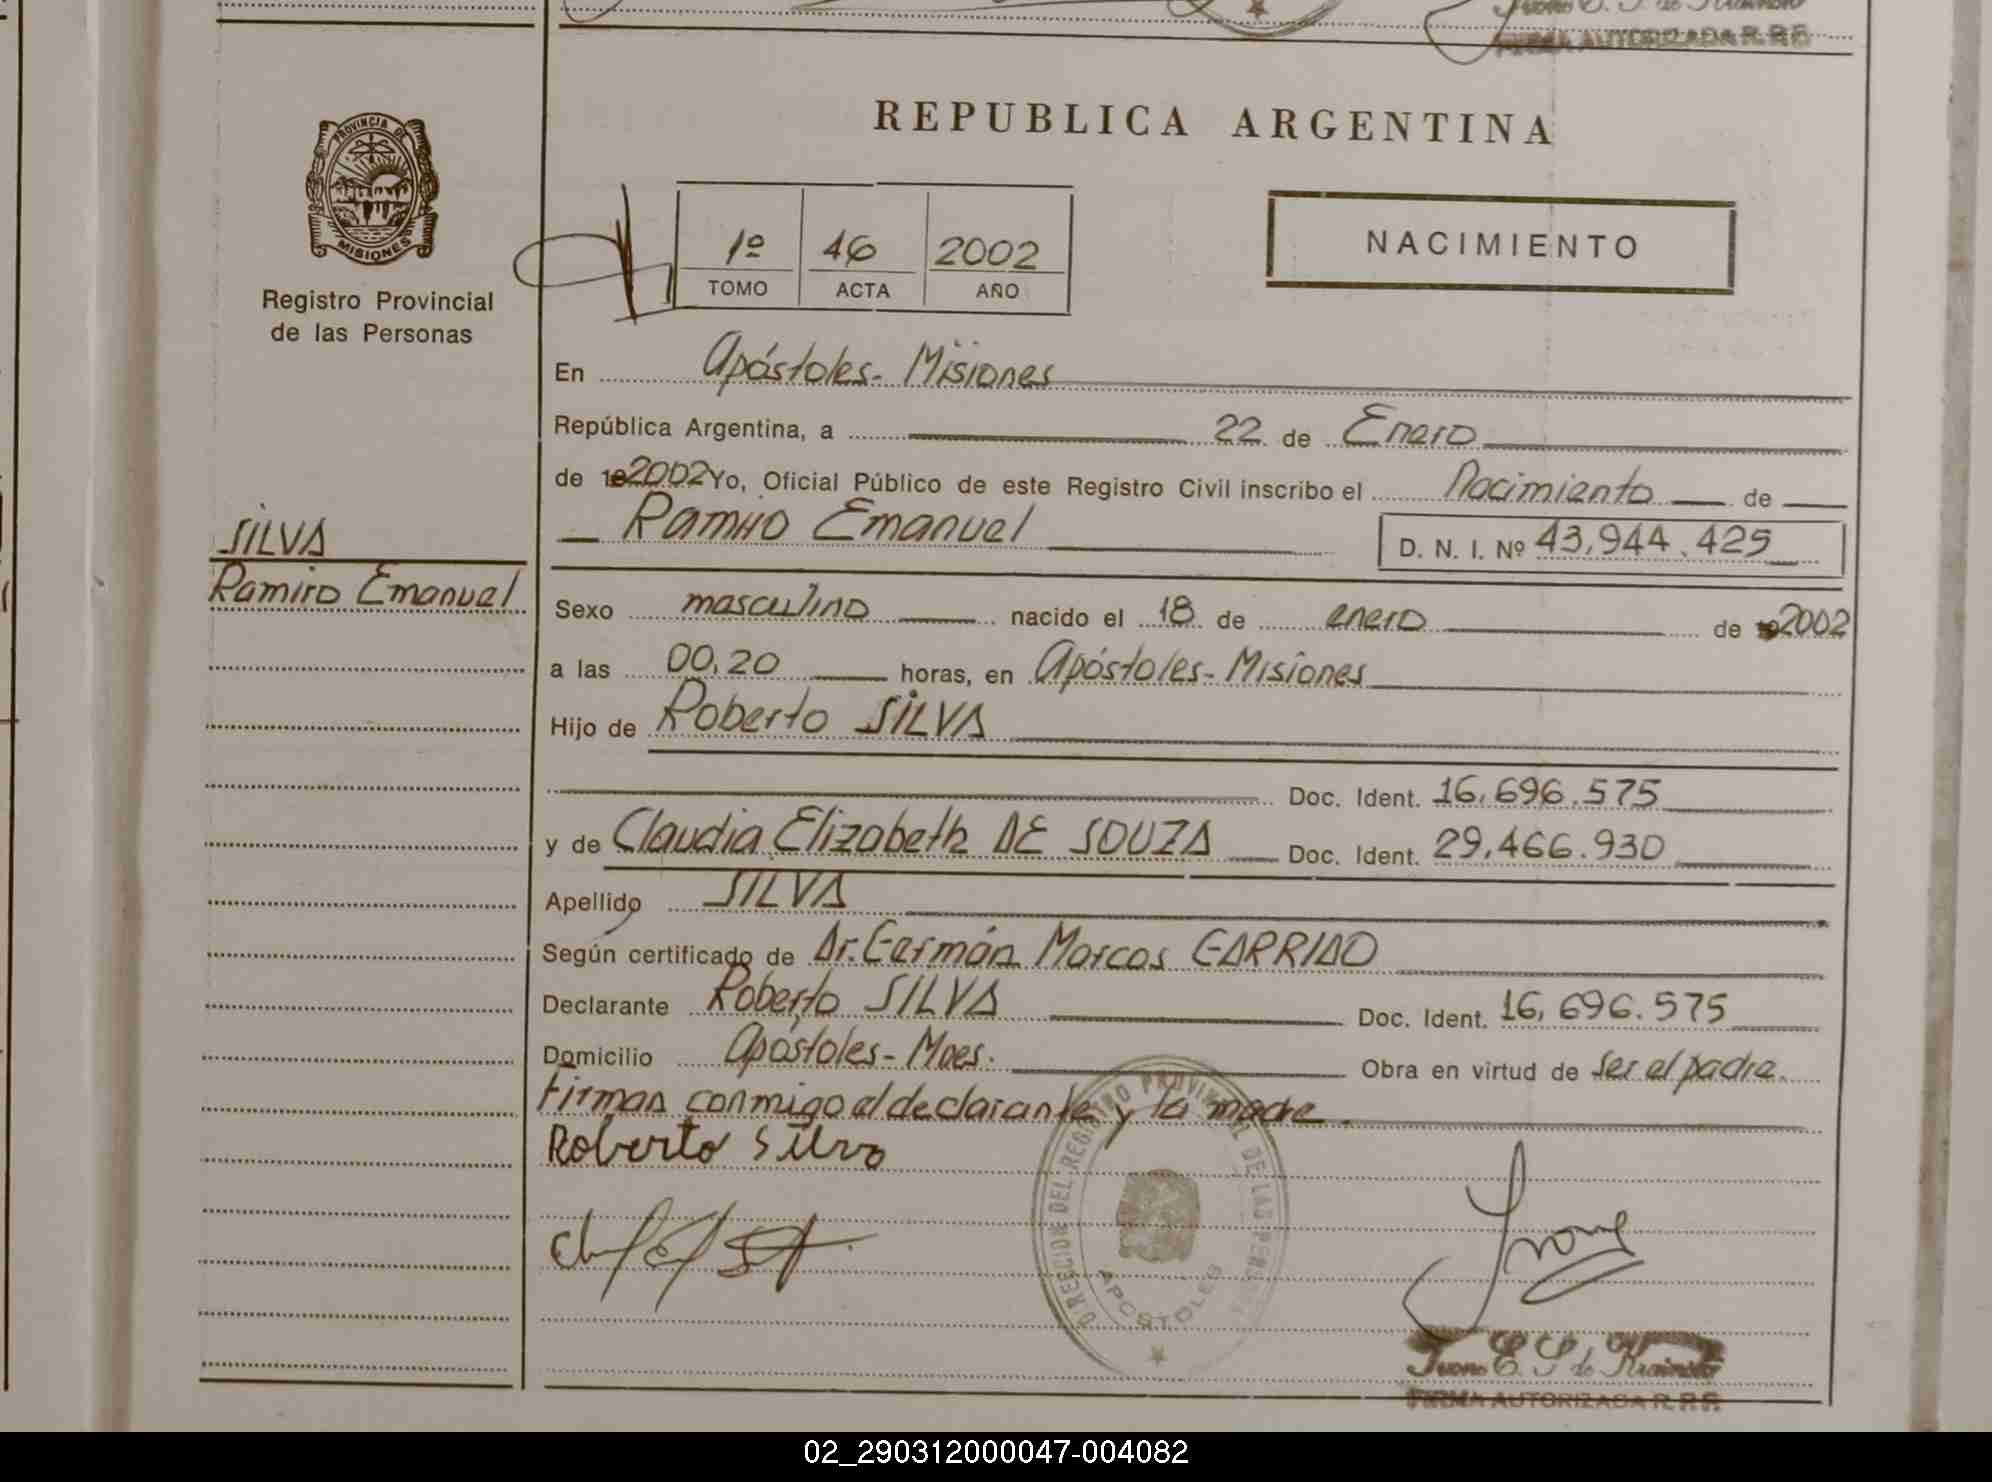 FIRMA AUTORIZADA R.P.P.
REPUBLICA ARGENTINA
PROVINCIA DE
MISIONES
Registro Provincial
de las Personas
1º 46 2002
TOMO ACTA AÑO
NACIMIENTO
En Apóstoles - Misiones
República Argentina, a 22 de Enero
de 2002 Yo, Oficial Público de este Registro Civil inscribo el Nacimiento de
Ramiro Emanuel D. N. I. Nº 43,944.425
SILVA
Ramiro Emanuel
Sexo masculino nacido el 18 de enero de 2002
a las 00,20 horas, en Apóstoles - Misiones
Hijo de Roberto SILVA
Doc. Ident. 16,696.575
y de Claudia Elizabeth DE SOUZA Doc. Ident. 29,466.930
Apellido SILVA
Según certificado de Dr. Germán Marcos GARRIDO
Declarante Roberto SILVA Doc. Ident. 16,696.575
Domicilio Apóstoles - Mnes. Obra en virtud de ser el padre.
Firman conmigo el declarante y la madre.
Roberto Silva
DIRECCION DEL REGISTRO PROVINCIAL DE LAS PERSONAS
APOSTOLES
FIRMA AUTORIZADA R.P.P.
02_290312000047-004082